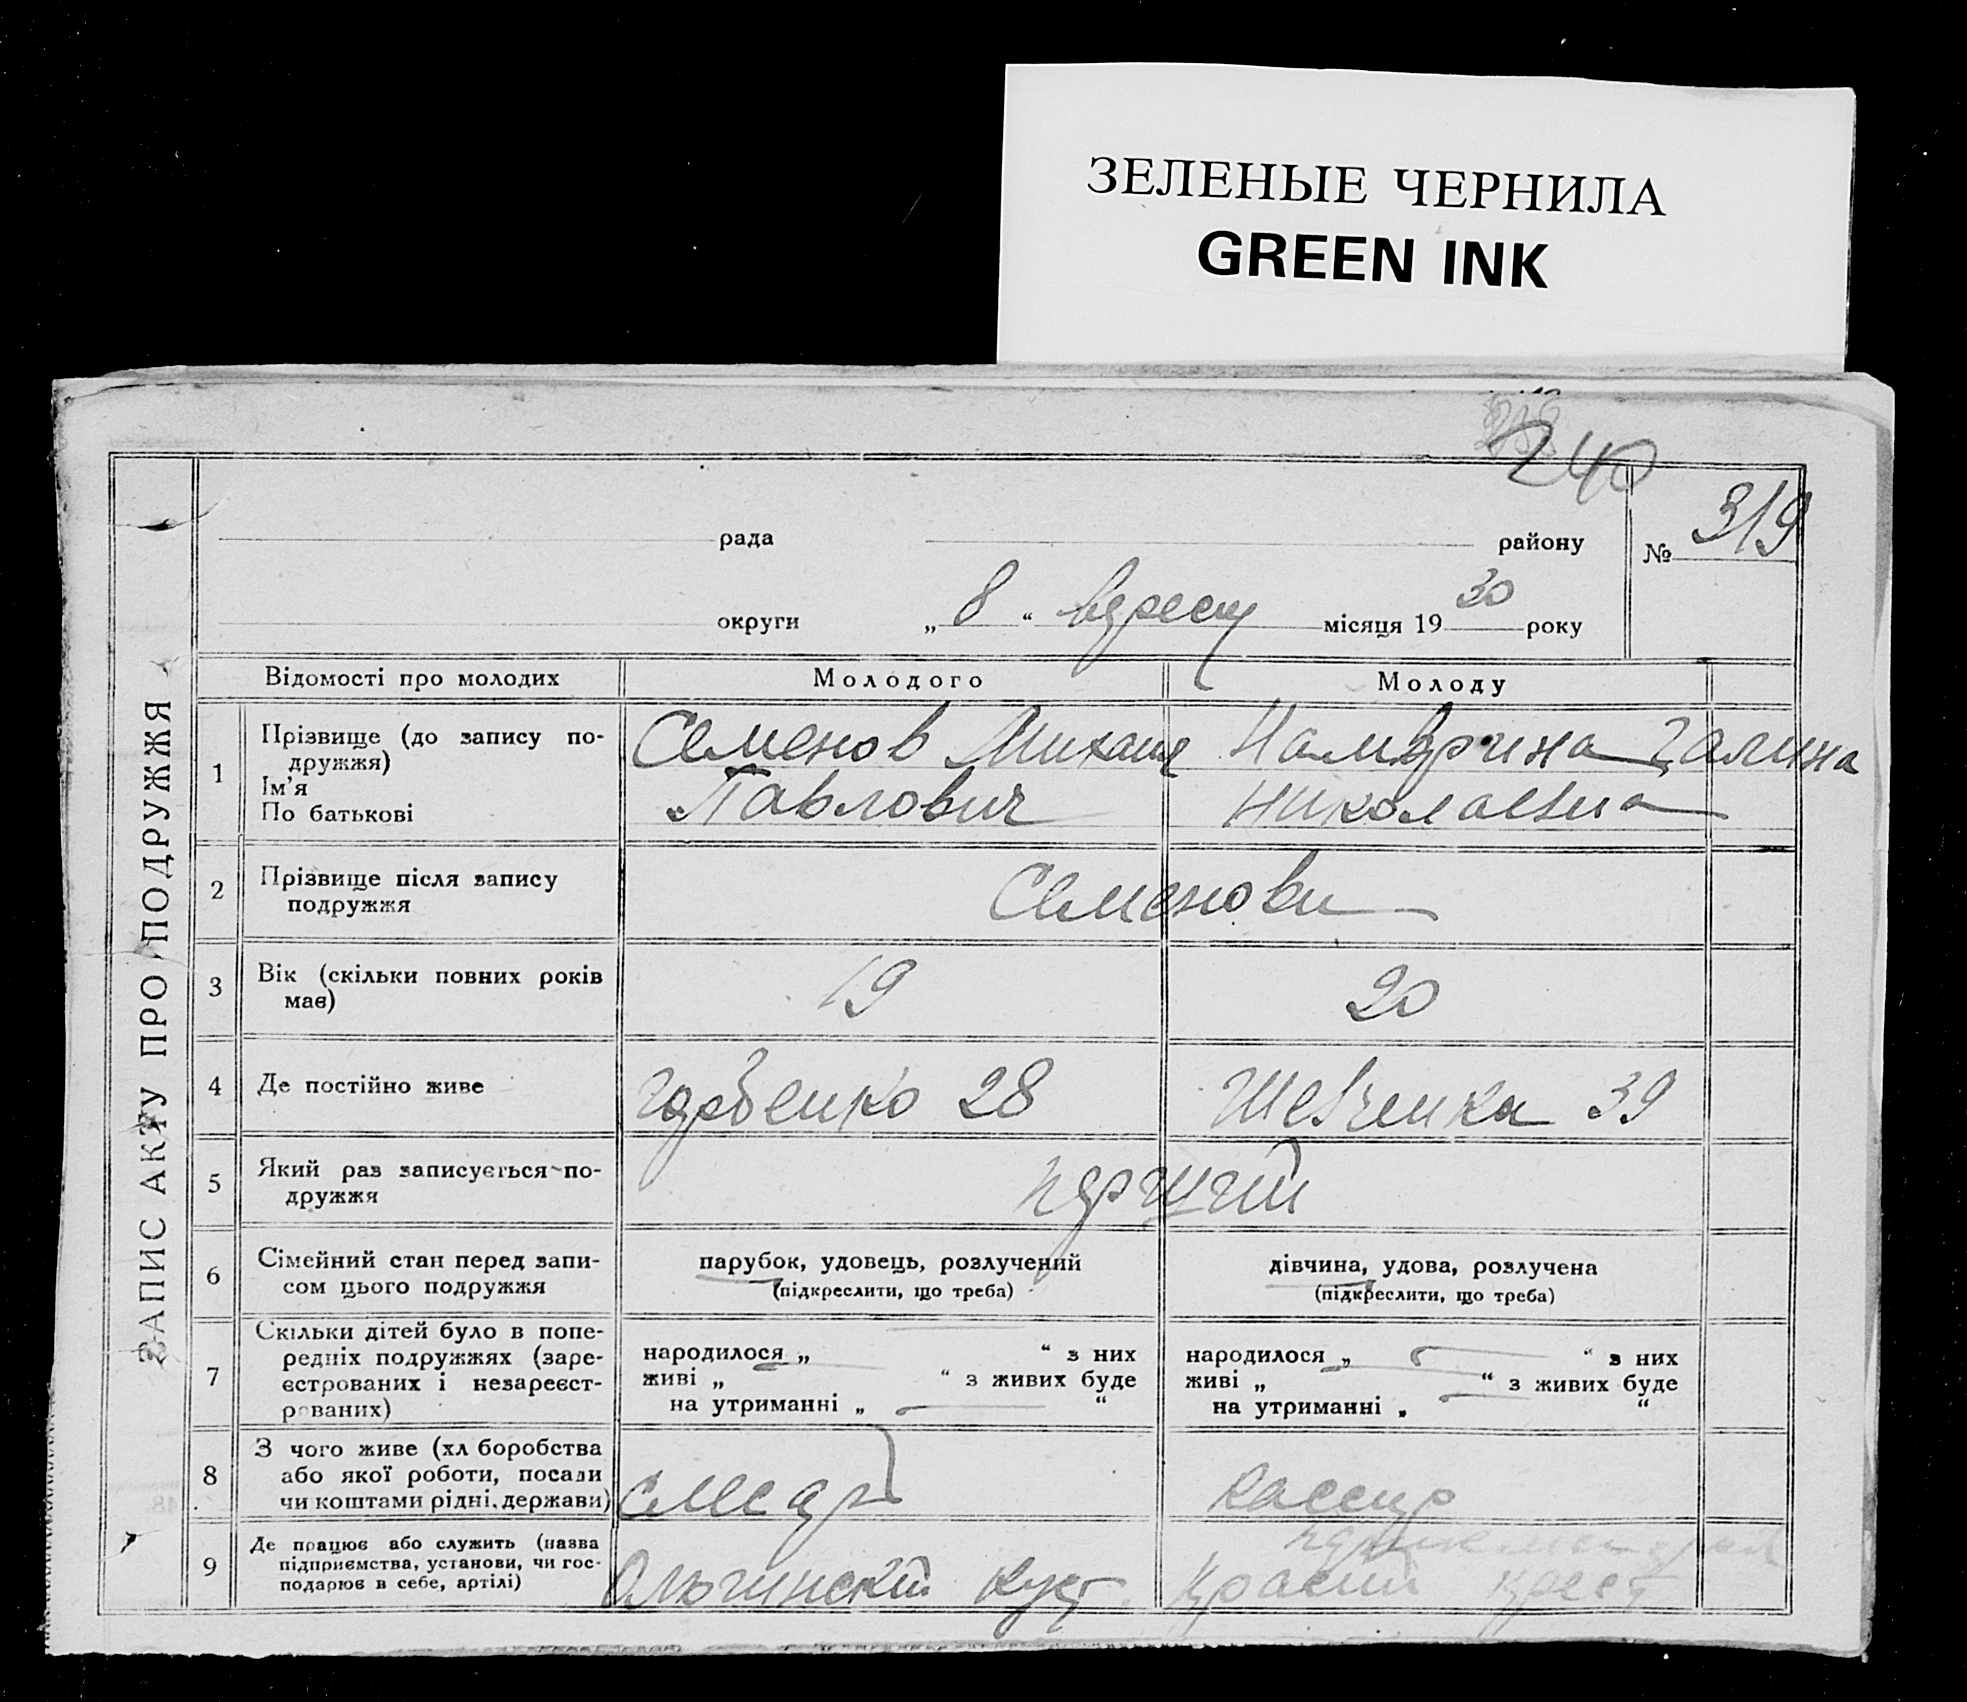 ЗЕЛЕНЫЕ ЧЕРНИЛА
GREEN INK
240
рада району № 319
округи „ 8 “ вересня місяця 19 30 року
ЗАПИС АКТУ ПРО ПОДРУЖЖЯ
Відомості про молодих Молодого Молоду
1 Прізвище (до запису по-
дружжя)
Ім'я
По батькові
Семенов Михаил
Павлович
Галина
Николаевна
2 Прізвище після запису
подружжя
Семенови
3 Вік (скільки повних років
має)
19 20
4 Де постійно живе
28 Шевченка 39
5 Який раз записується по-
дружжя
перший
6 Сімейний стан перед запи-
сом цього подружжя
парубок, удовець, розлучений
(підкреслити, що треба)
дівчина, удова, розлучена
(підкреслити, що треба)
7 Скільки дітей було в попе-
редніх подружжях (заре-
єстрованих і незареєст-
рованих)
народилося „ “ з них
живі „ “ з живих буде
на утриманні „ “
народилося „ “ з них
живі „ “ з живих буде
на утриманні „ “
8 З чого живе (хліборобства
або якої роботи, посади
чи коштами рідні, держави)
кассир
9 Де працює або служить (назва
підприємства, установи, чи гос-
подарює в себе, артілі)
Ольгинский куст.
крест